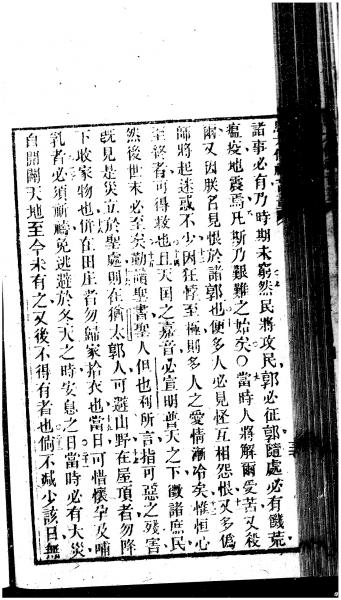 諸事必有乃時期未窮然民將攻民郭必征郭隨處必有饑荒
瘟疫地震焉凡斯乃艱難之始矣〇當時人將解爾受苦又殺
爾又因朕名見恨於諸郭也便多人必見怪互相怨恨又多僞
師將起迷惑不少因狂悖至極則多人之愛情漸冷矣惟恒心
至終者可得救也且天国之嘉音必宣明普天之下徵諸庶民
然後世末必至矣勒讀聖書聖人但也利所言指可惡之殘害
既見是災立於聖處則在猶太郭人可避山野在屋頂者勿降
下收家物也併在田庄者勿歸家拾衣也當日可惜懷孕及哺
乳者必須祈禱免逃避於冬天之時安息之日當時必有大災
自開闢天地至今未有之又後不得有者也倘不減少該日無